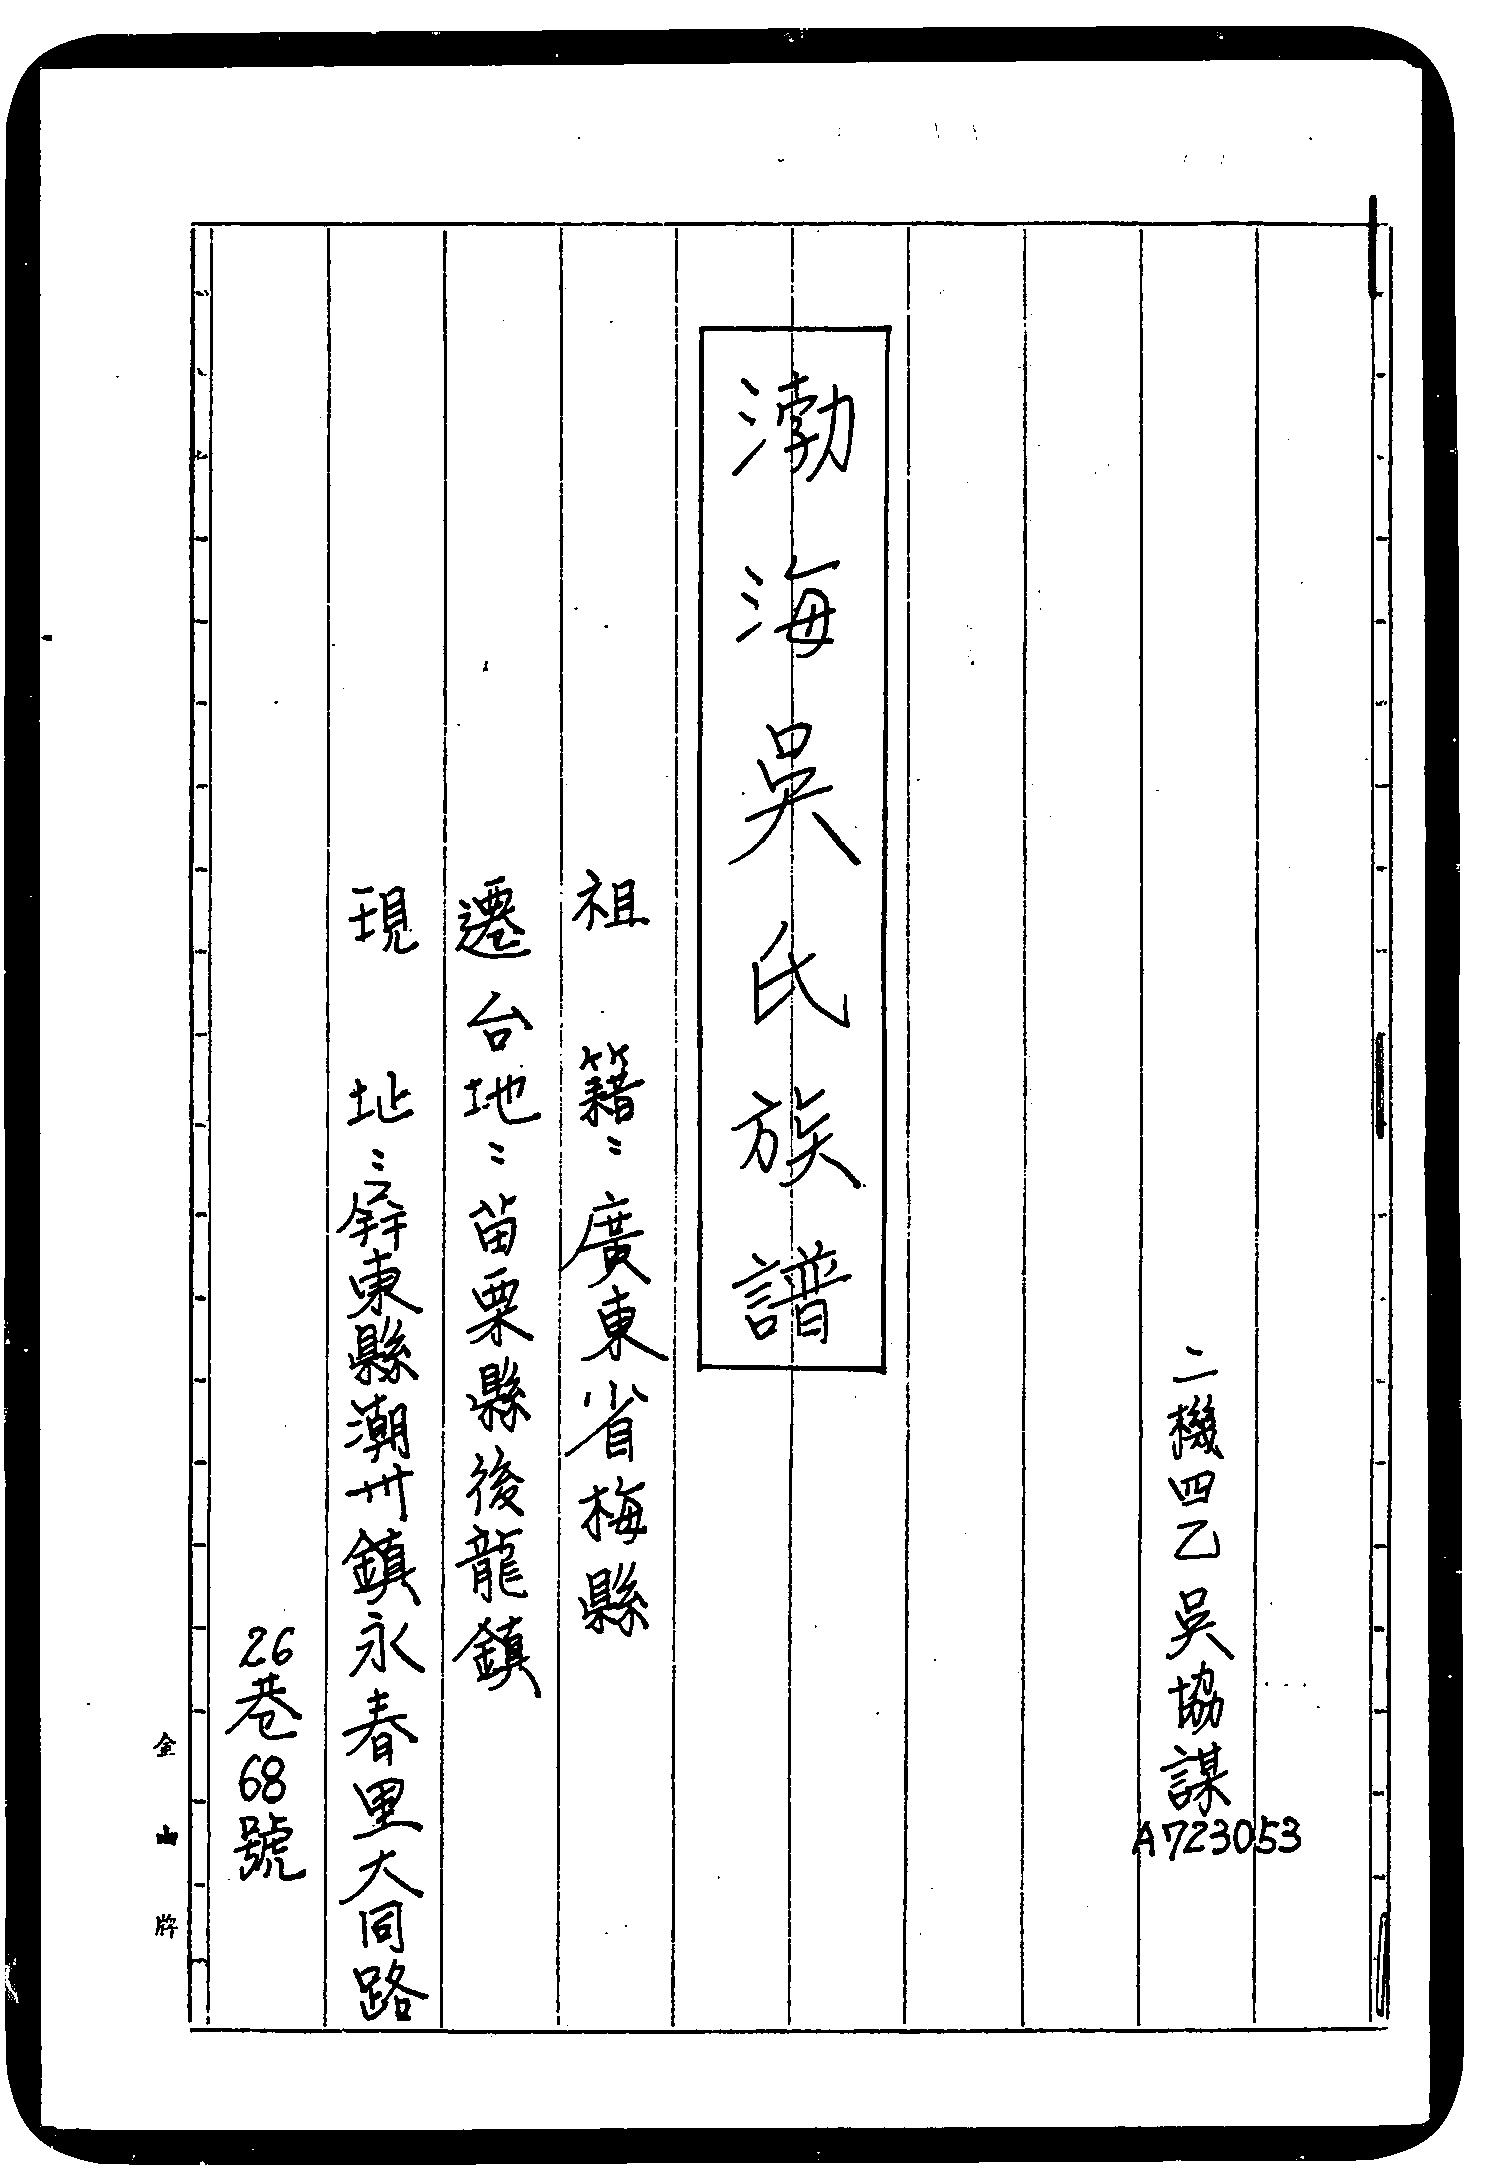 二機四乙吳協謀
A723053
渤海吳氏族譜
祖籍：廣東省梅縣
遷台地：苗栗縣後龍鎮
現址：屏東縣潮州鎮永春里大同路
26巷68號
金山牌